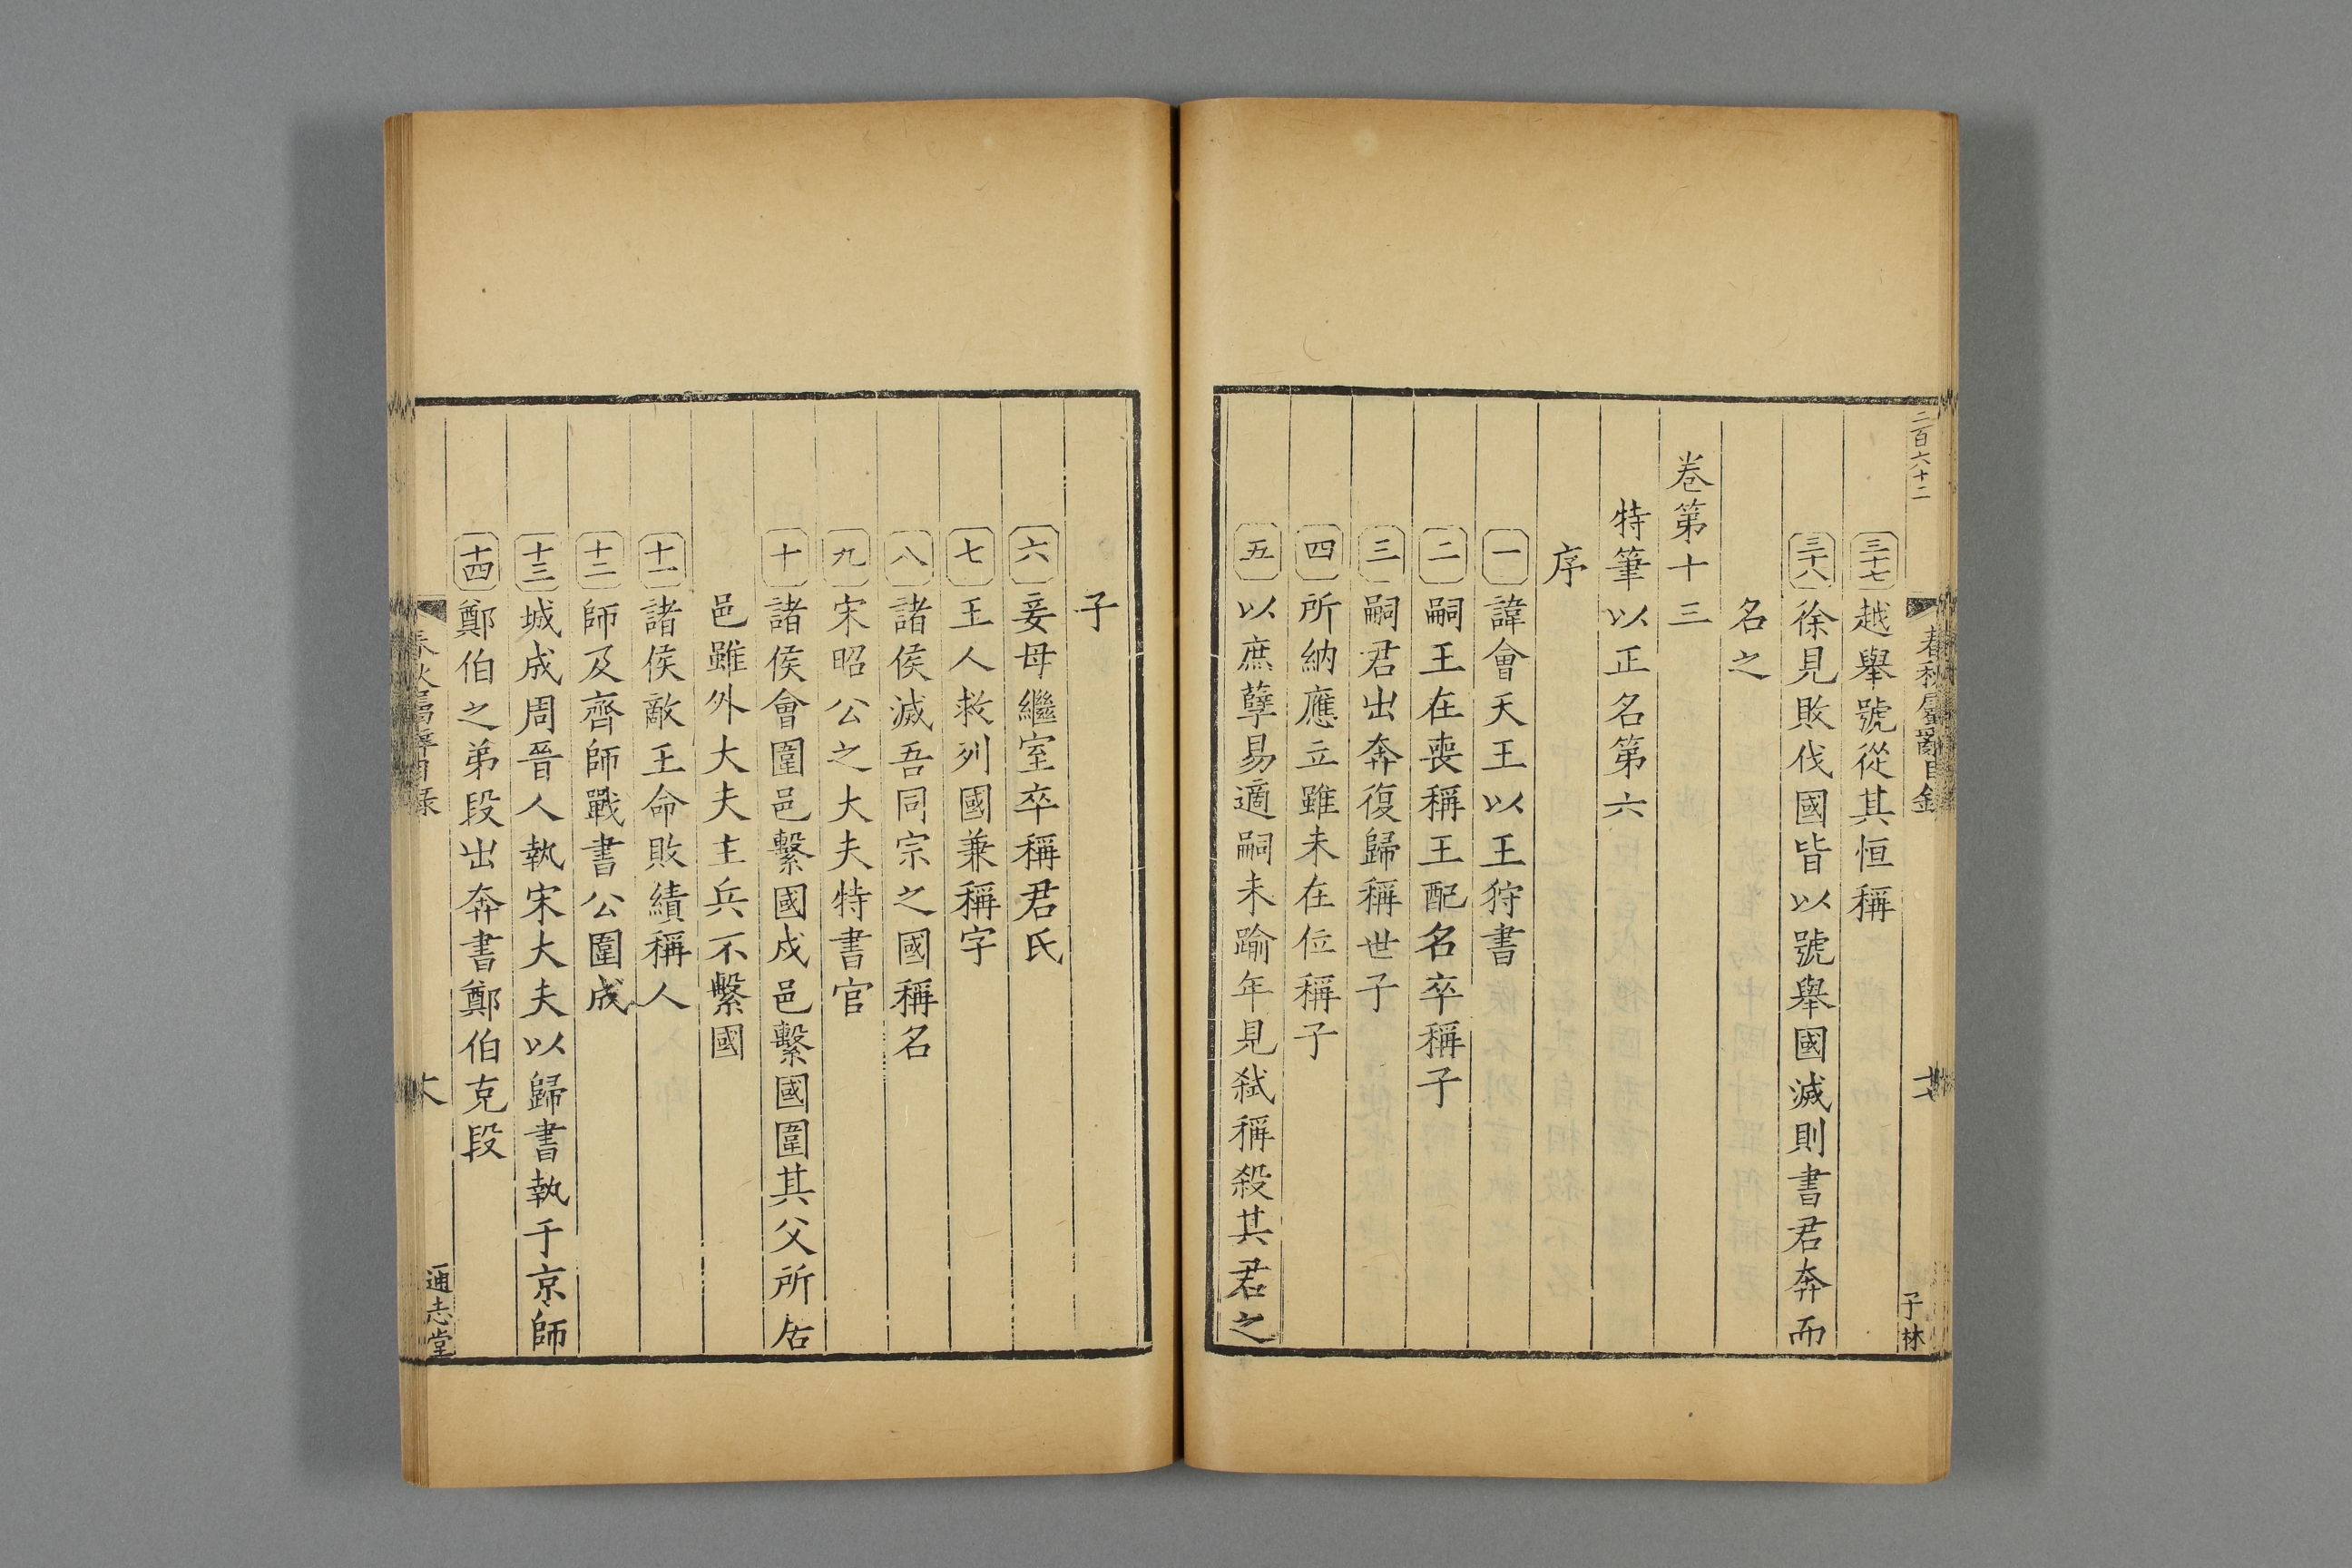 二百六十二
春秋屬辭目錄
子林
三十七 越舉號從其恒稱
三十八 徐見敗伐國皆以號舉國滅則書君奔而
名之
卷第十三
特筆以正名第六
序
一 諱會天王以王狩書
二 嗣王在喪稱王配名卒稱子
三 嗣君出奔復歸稱世子
四 所納應立雖未在位稱子
五 以庶孽易適嗣未踰年見弒稱殺其君之
子
六 妾母繼室卒稱君氏
七 王人救列國兼稱字
八 諸侯滅吾同宗之國稱名
九 宋昭公之大夫特書官
十 諸侯會圍邑繫國戍邑繫國圍其父所居
邑雖外大夫主兵不繫國
十一 諸侯敵王命敗績稱人
十二 師及齊師戰書公圍成
十三 城成周晉人執宋大夫以歸書執于京師
十四 鄭伯之弟段出奔書鄭伯克段
春秋屬辭目錄
通志堂